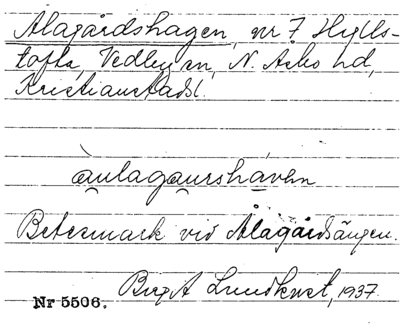 Ålagårdshagen, nr 7 Hylls-
tofta, Vedby sn, N. Åsbo hd,
Kristianstads l.
àulagaurshávən
Betesmark vid Ålagårdsängen.
Birgit Lundkvist, 1937.
Nr 5506.